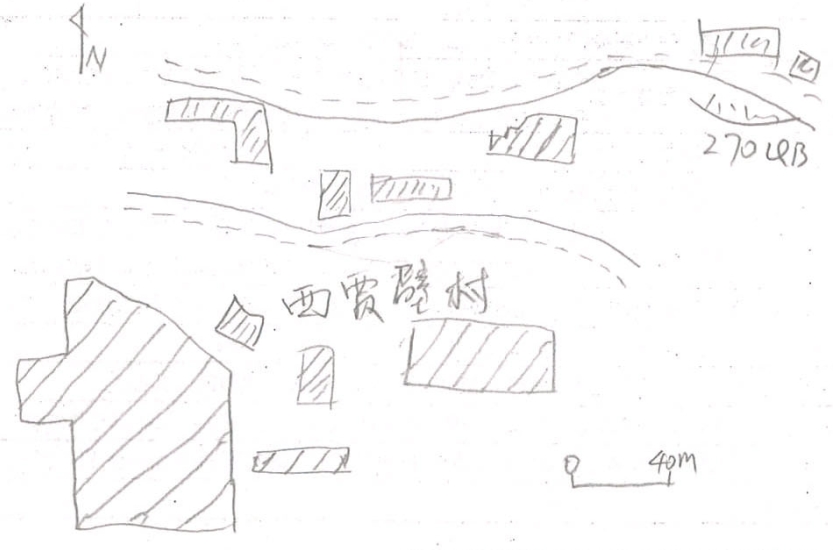 N
270山B
西贾壁村
0 40m